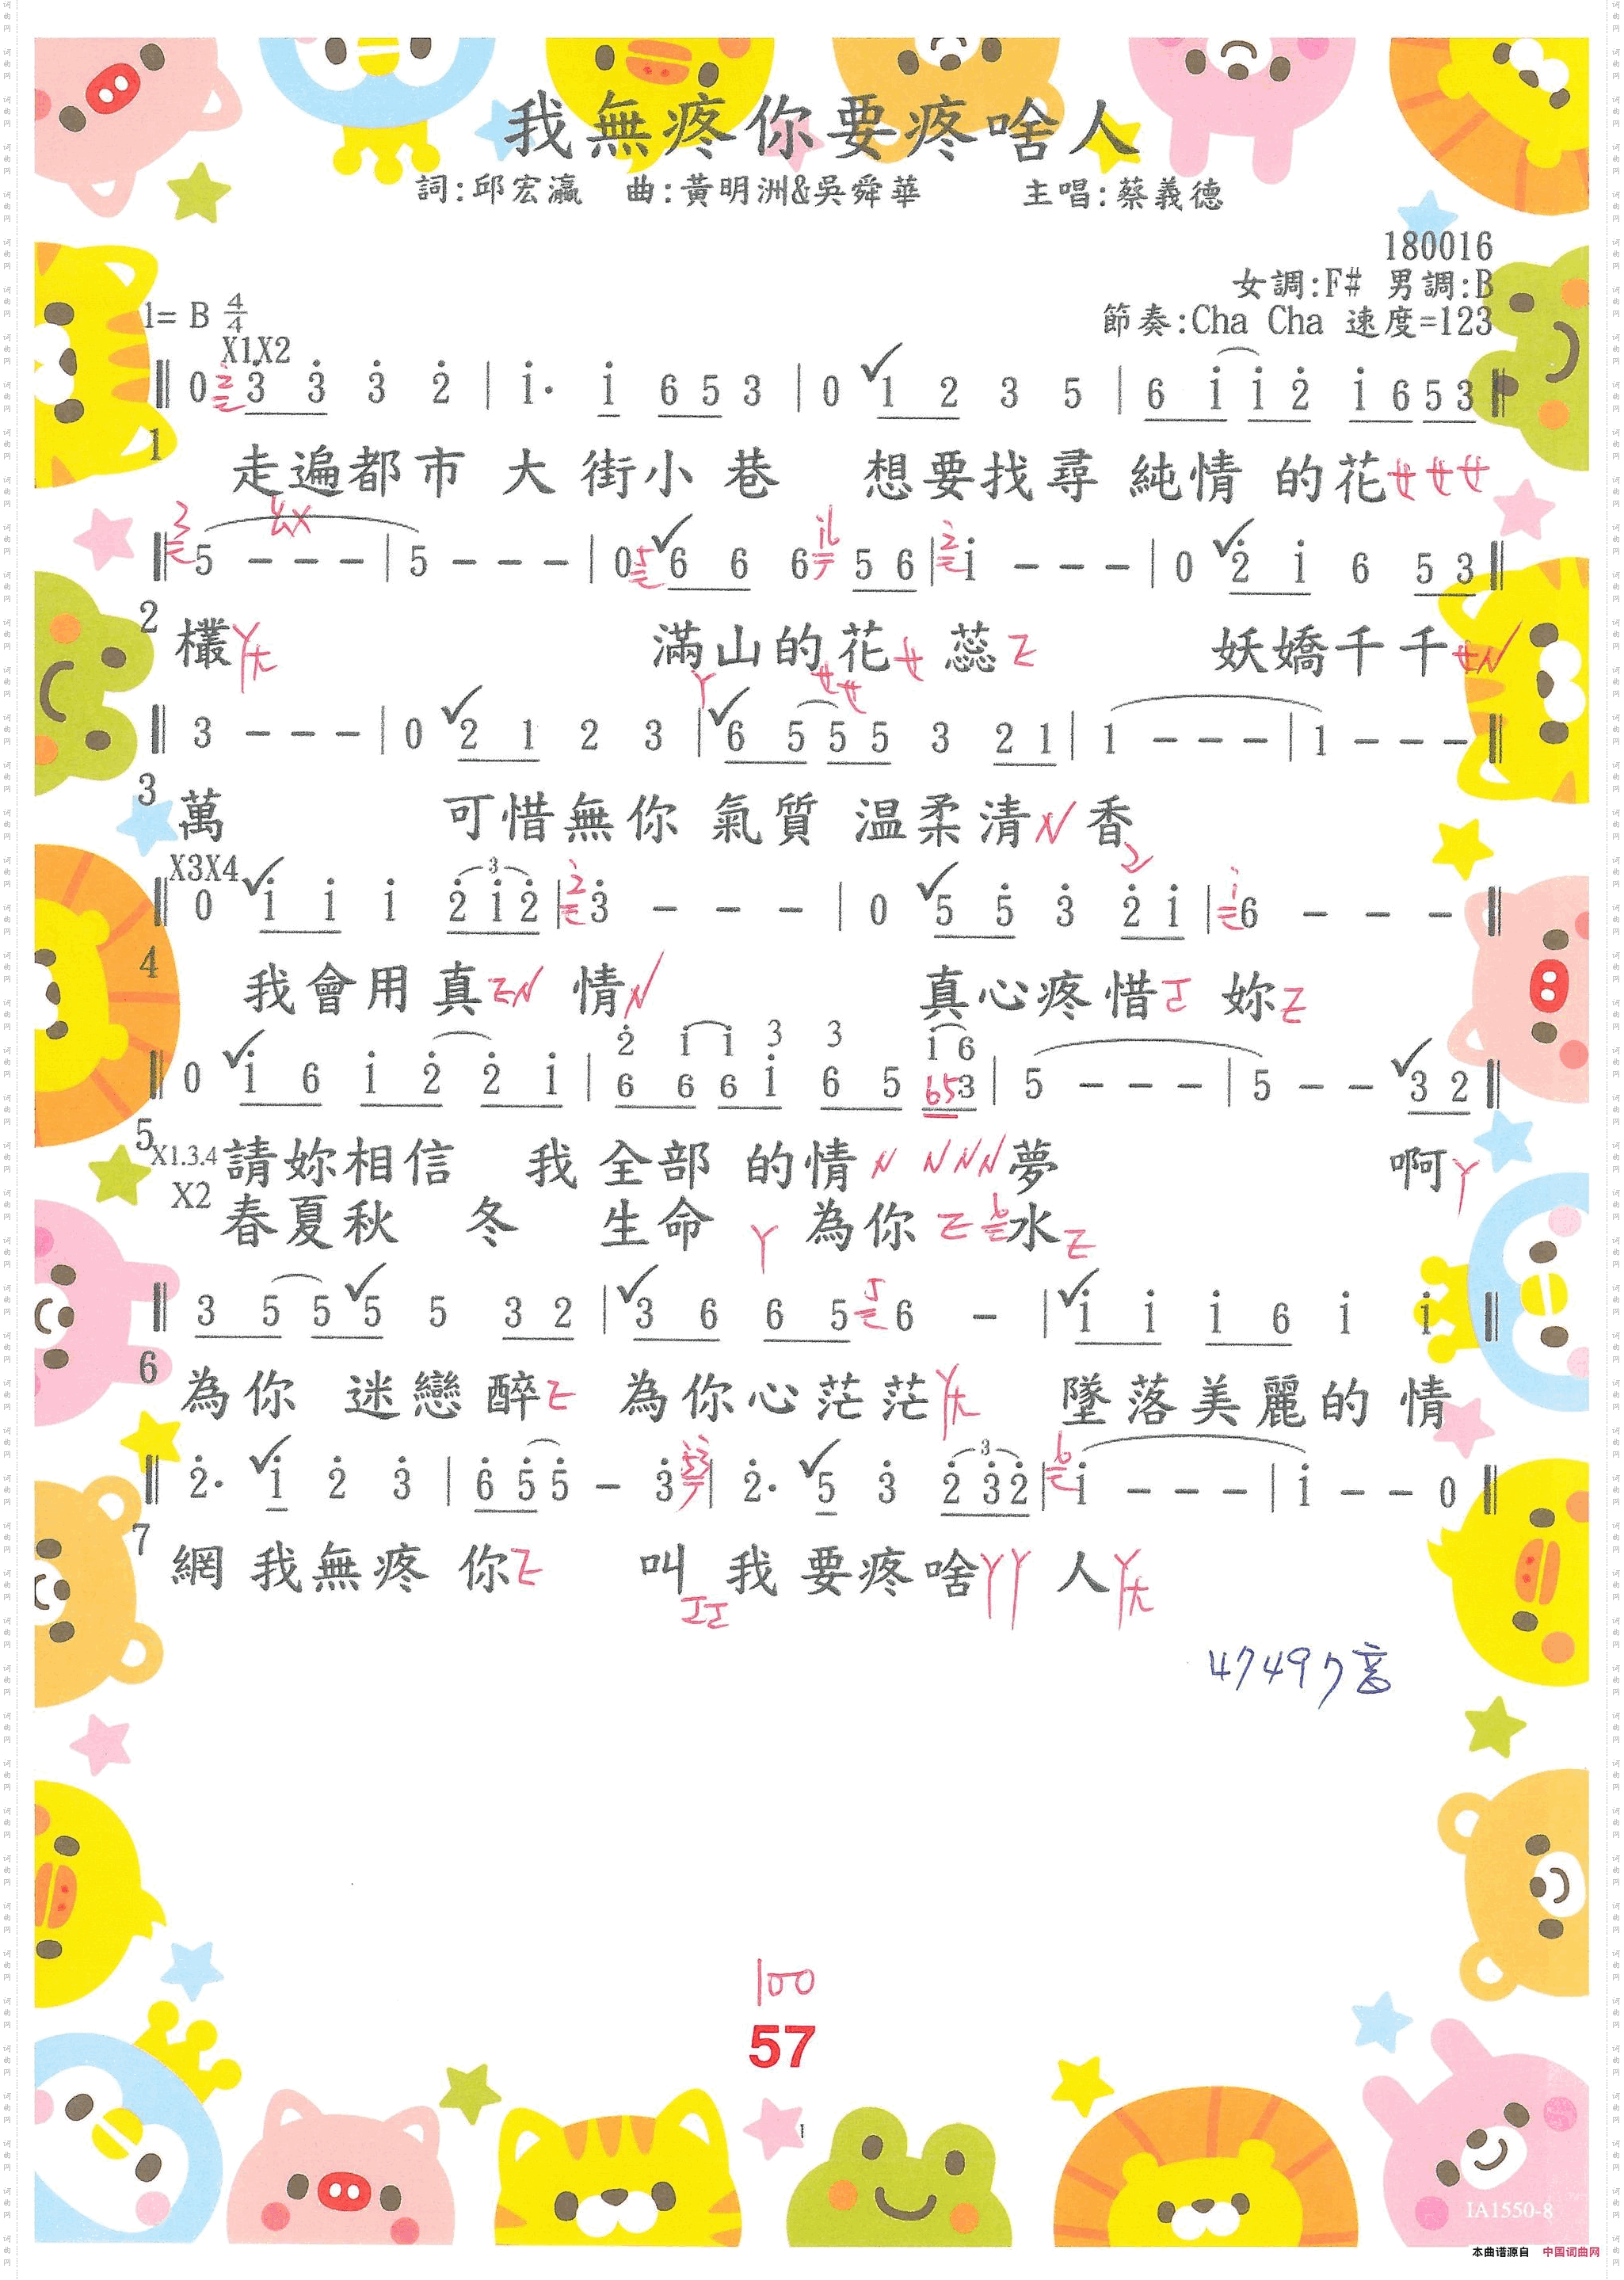 我無疼你要疼啥人
詞:邱宏瀛 曲:黃明洲&吳舜華 主唱:蔡義德
180016
女調:F# 男調:B
1= B 4/4 節奏:Cha Cha 速度=123
X1X2
0 3 3 3 2 | i· i 6 5 3 | 0 1 2 3 5 | 6 i i 2 i 6 5 3
1 走遍都市 大街小巷 想要找尋純情 的花ㄝㄝㄝ
5 - - - | 5 - - - | 0 6 6 6 5 6 | i - - - | 0 2 i 6 5 3
2 欉ㄚㄤ 滿山的花ㄝ蕊ㄛ 妖嬌千千ㄝㄣ
3 - - - | 0 2 1 2 3 | 6 5 5 5 3 2 1 | 1 - - - | 1 - - -
3 萬 可惜無你 氣質 温柔清 香
X3X4
0 i i i 2 i 2 | 3 - - - | 0 5 5 3 2 i | 6 - - -
4 我會用真 情 真心疼惜 妳
2 i i 3 3 i 6
0 i 6 i 2 2 i | 6 6 6 i 6 5 653 | 5 - - - | 5 - - 3 2
5
X1.3.4 請妳相信 我全部 的情 夢 啊ㄚ
X2 春夏秋 冬 生命 ㄚ 為你 水
3 5 5 5 5 3 2 | 3 6 6 5 6 - | i i i 6 i i
6 為你 迷戀醉 為你心茫茫ㄚㄤ 墜落美麗的 情
2· i 2 3 | 6 5 5 - 3 | 2· 5 3 2 3 2 | i - - - | i - - 0
7 網 我無疼 你 叫 我 要疼啥ㄚㄚ 人ㄚㄤ
100
57
1
IA1550-8
本曲谱源自 中国词曲网